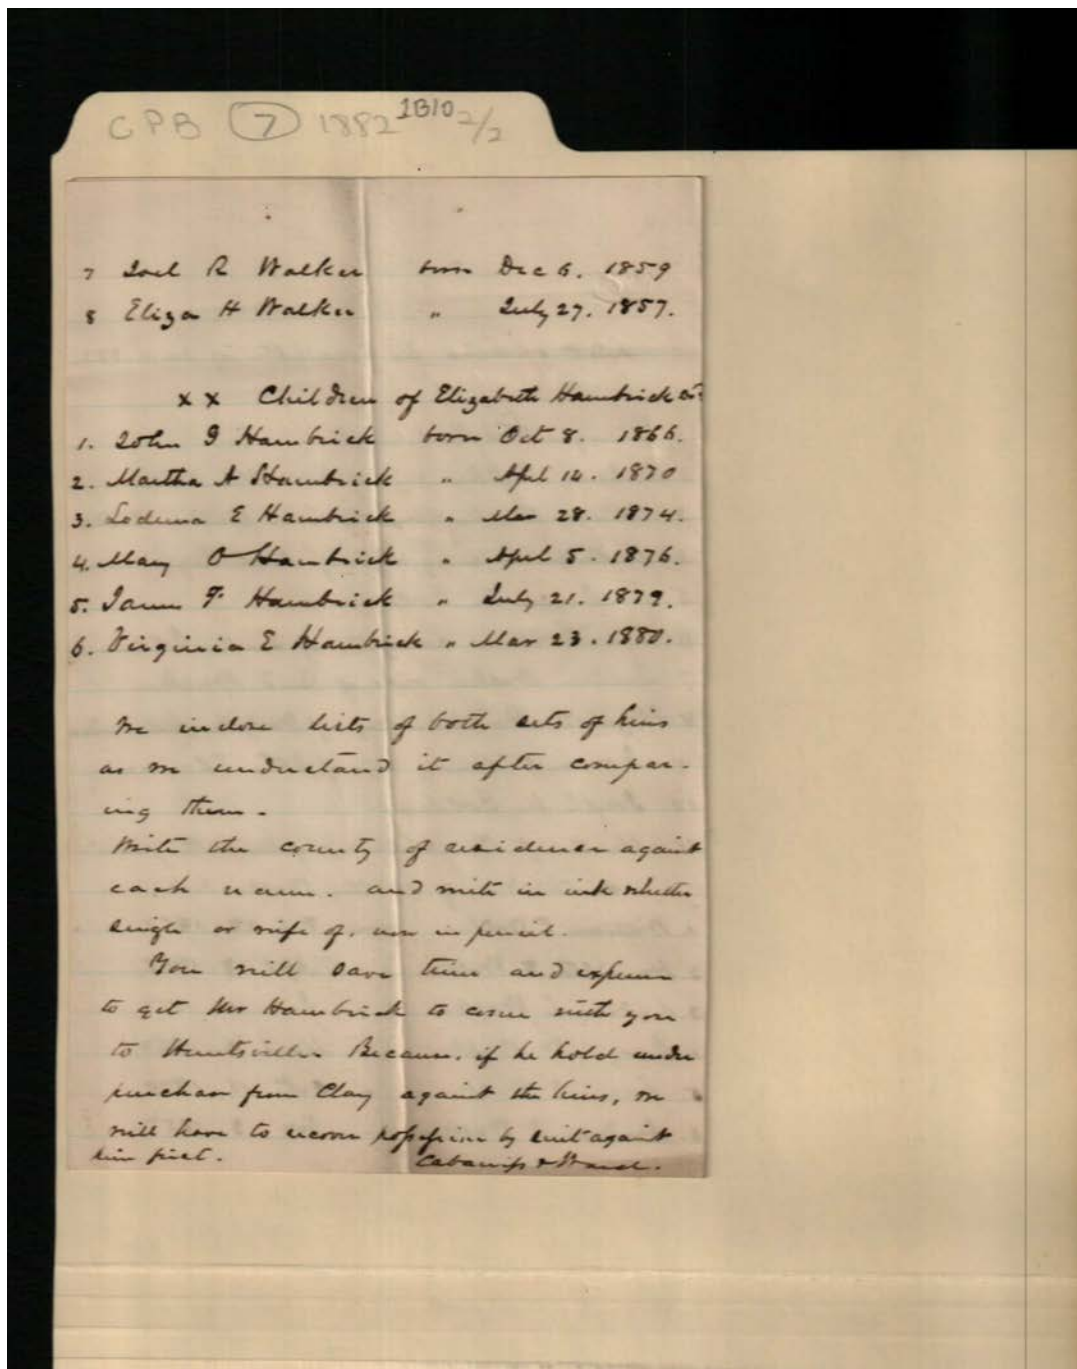 CPB 7 1882 1B10 2/2
7 Joel R Walker born Dec 6. 1859
8 Eliza H Walker " July 27. 1857.
x x Children of Elizabeth Hambrick
1. John J Hambrick born Oct 8. 1866.
2. Martha A Hambrick " Apl 14. 1870
3. Lodema E Hambrick " Mar 28. 1874.
4. Mary O Hambrick " Apl 5. 1876.
5. James F. Hambrick " July 21. 1879.
6. Virginia E Hambrick " Mar 23. 1880.
We inclose lists of both sets of heirs
as we understand it after compar-
ing them.
Write the county of residence against
each name. and write in ink whether
single or wife of, now in pencil.
You will save time and expense
to get Mr Hambrick to come with you
to Huntsville. Because, if he hold under
purchase from Clay against the heirs, we
will have to recover possession by suit against
him first. Cabaniss & Ward.